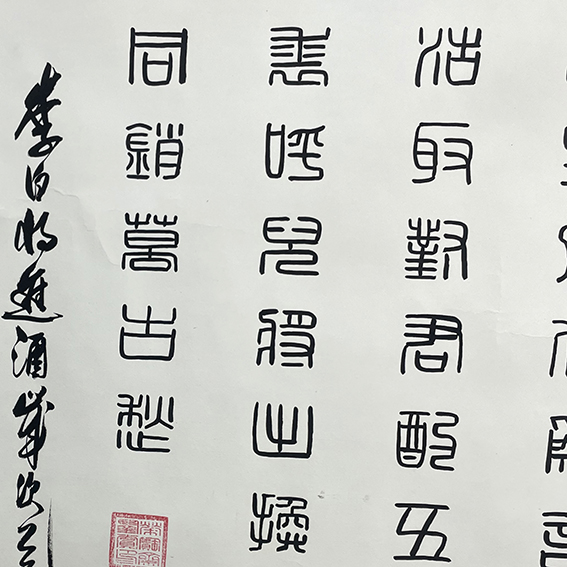 沽取對君酌五
裘呼兒將出換
同銷萬古愁
李白將進酒歲次